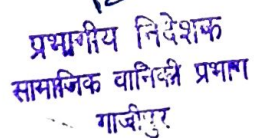 प्रभागीय निदेशक
सामाजिक वानिकी प्रभाग
गाजीपुर